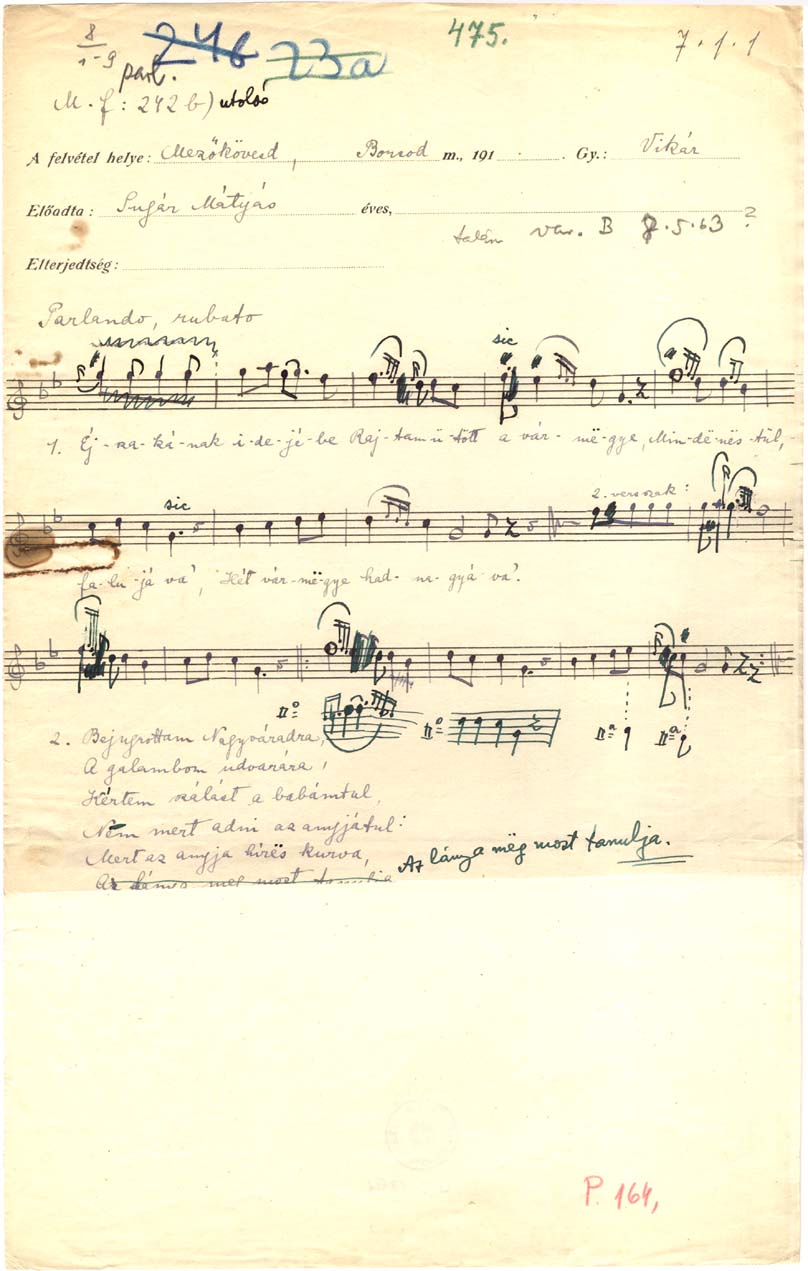 8
1-9
24b 23a
475.
7.1.1
parl.
M. f: 242 b) utolsó
A felvétel helye: Mezőkövesd, Borsod m., 191 . Gy.: Vikár
Előadta: Sugár Mátyás éves,
talán var. B 7.5.63 ?
Elterjedtség:
Parlando, rubato
sic
1. Éj-sza-ká-nak i-de-jé-be Raj-tam ü-tött a vár-më-gye, Min-dë-nës-tül,
sic
2. versszak:
fa-lu-já vá', Hét vár-më-gye had-na-gyá vá'.
IIº IIº IIª IIª
2. Bejugrottam Nagyváradra,
A galambom udvarára,
Kértem szálást a babámtul,
Nem mert adni az anyjátul:
Mert az anyja hírës kurva,
Az lánya mëg most tanulja.
P. 164,